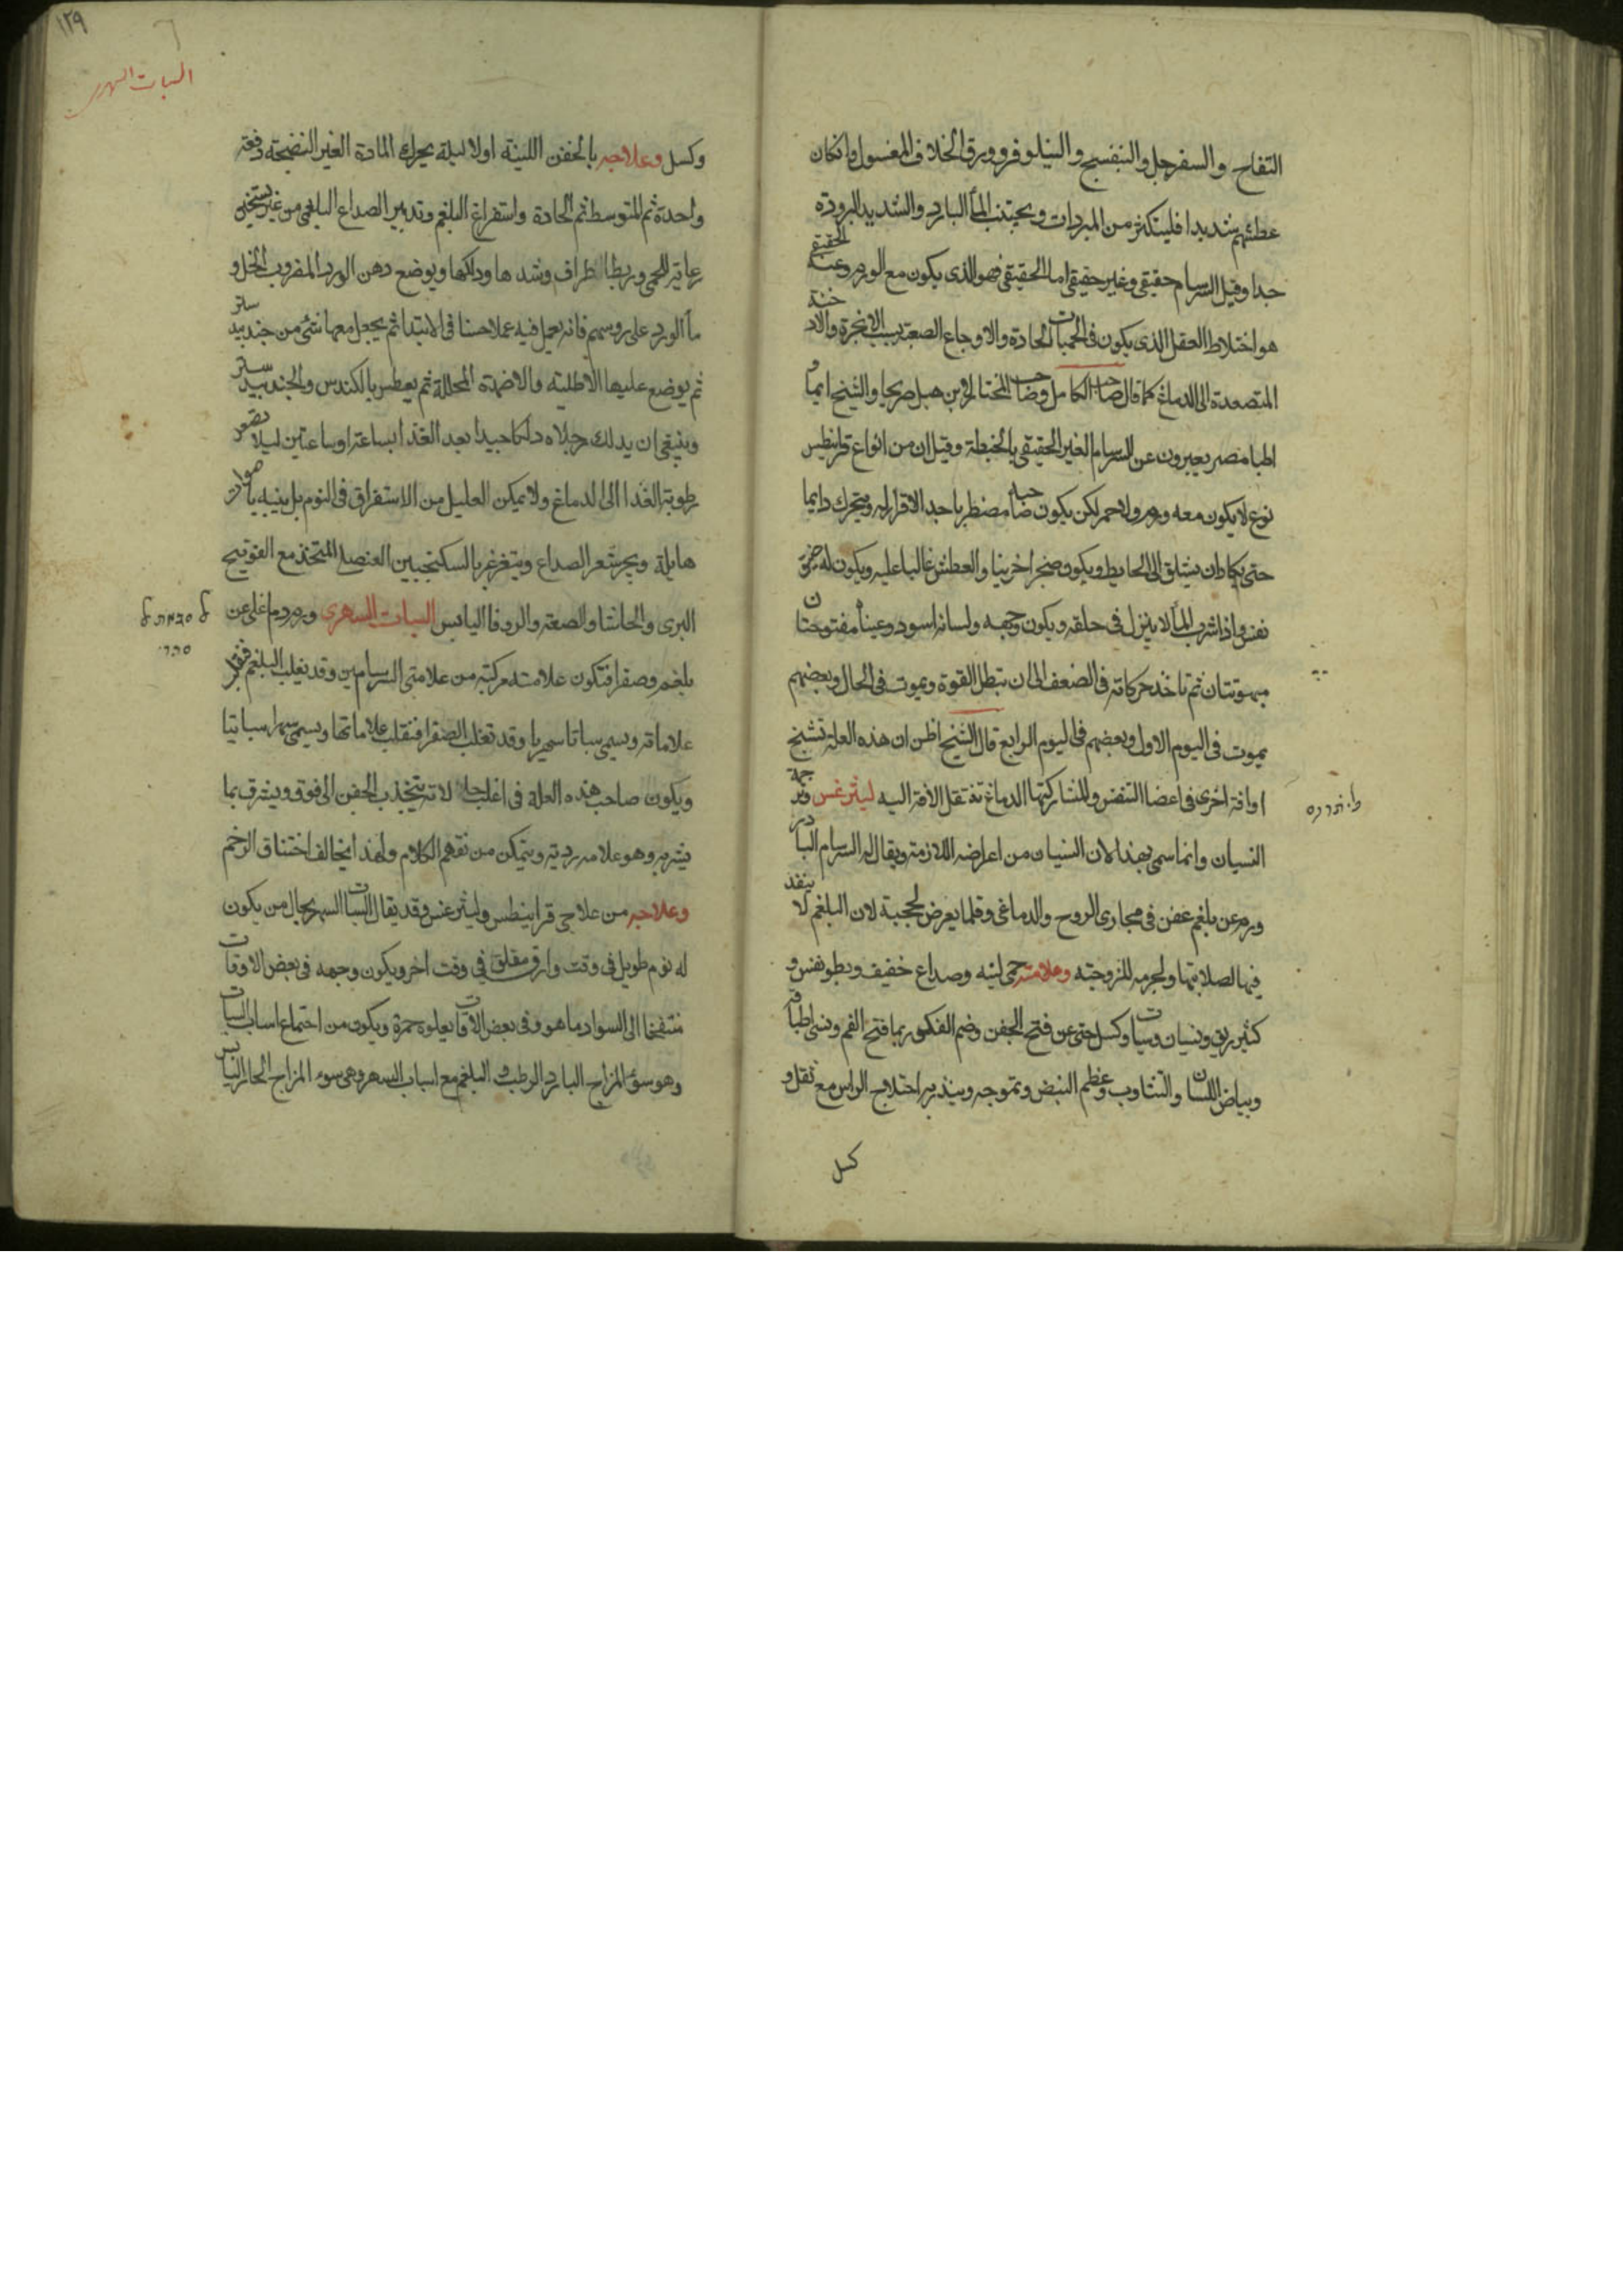 التفاح والسفرجل والبنفسج والنيلوفر وورق الخلاف المغسول وان كان
عطشهم شديدا فليستكثر من المبردات ويجتنب الماً البارد والشديد البرودة
جدا وقيل السرسام حقيقى وغير حقيقى اما الحقيقى فهو الذى يكون مع الورم وغير الحقيقى
هو اختلاط العقل الذى يكون فى الحميات الحادة والاوجاع الصعبة بسبب الابخرة والادخنة
المتصعدة الى الدماغ كما قال صاحب الكامل وصاحب المختار وابن هبل صريحا والشيخ ايما و
اطبا مصر يعبرون عن السرسام الغير الحقيقى بالخبطة وقيل ان من انواع قرانيطس
نوع لا يكون معه ورم ولا حمر لكن يكون صاحبه مضطربا جدا لاقرار له ويتحرك دايما
حتى يكاد ان يتسلق الى الحايط ويكون ضجرا والعطش غالبا عليه ويكون له ضيق
نفس واذا شرب الماً لا ينزل فى حلقه ويكون وجهه ولسانه اسود وعيناه مفتوحتان
مبهوتتان ثم تاخذ حركاته فى الضعف الى ان تبطل القوة ويموت فى الحال وبعضهم
يموت فى اليوم الاول وبعضهم فى اليوم الرابع قال الشيخ اظن ان هذه العلة تشنج
او افة اخرى فى اعضا التنفس ولمشاركتها الدماغ تنتقل الافة اليه ليثرغس وترجمة
النسيان وانما سمى بهذا لان النسيان من اعراضه اللازمة ويقال له السرسام البارد
ورم عن بلغم عفن فى مجارى الروح والدماغى وقلما يعرض لحجبة لان البلغم لا ينفذ
فيها لصلابتها ولجرمه للزوجته وعلامته حمى لينه وصداع خفيف وبطو نفس و
كثير ريق ونسيان وسبات وكسل حتى عن فتح الجفن وضم الفك وربما فتح الفم ونسى اطباقه
وبياض اللسان والتثاوب وعظم النبض وتموجه وينذر به اختلاج الراس مع ثقل و
كسل
١٢٩
السبات السهرى
وكسل وعلاجه بالحقن اللينه اولا ليلا يحرك المادة الغير النضيجة دفعة
واحدة ثم المتوسط ثم الحادة واستفراغ البلغم وتدبير الصداع البلغمى من غير تسخين
رعاية للحمى وربط الاطراف وشدها ودلكها ويوضع دهن الورد المضروب بالخل و
ماً الورد على روسهم فانه يعمل فيه عملا حسنا فى الابتدا ثم يجعل معها شئ من جندبيدستر
ثم يوضع عليها الاطلية والاضمدة المحللة ثم يعطس بالكندس والجندبيدستر
وينبغى ان يدلك رجلاه دلكا جيدا بعد الغذا بساعة او ساعتين ليلا تصعد
رطوبة الغذا الى الدماغ ولا يمكن العليل من الاستغراق فى النوم بل ينبه باصوات
هايلة ويجر شعر الصداع ويتغرغر بالسكنجبين العنصلى المتخذ مع الفوتنج
البرى والحاشا والصعتر والزوفا اليابس السبات السهرى ورم دماغى عن
بلغم وصفرا فتكون علامته مركبة من علامتى السرسامين وقد يغلب البلغم فتغلب
علاماته ويسمى سباتا سهريا وقد تغلب الصفرا فتغلب علاماتها ويسمى سهرا سباتيا
ويكون صاحب هذه العلة فى اغلب حالاته ينجذب الجفن الى فوق ويشرق بما
يشربه وهو علامة ردية ويتمكن من تفهم الكلام ولهذا يخالف اختناق الرحم
وعلاجه من علاجى قرانيطس وليثرغس وقد يقال السبات السهر بحال من يكون
له نوم طويل فى وقت وارق مقلق فى وقت اخر ويكون وجهه فى بعض الاوقات
منتفخا الى السواد ما هو وفى بعض الاوقات يعلوه حمرة ويكون من اجتماع اسباب السبات
وهو سوء المزاج البارد الرطب والبلغم مع اسباب السهر وهى سوء المزاج الحار اليابس